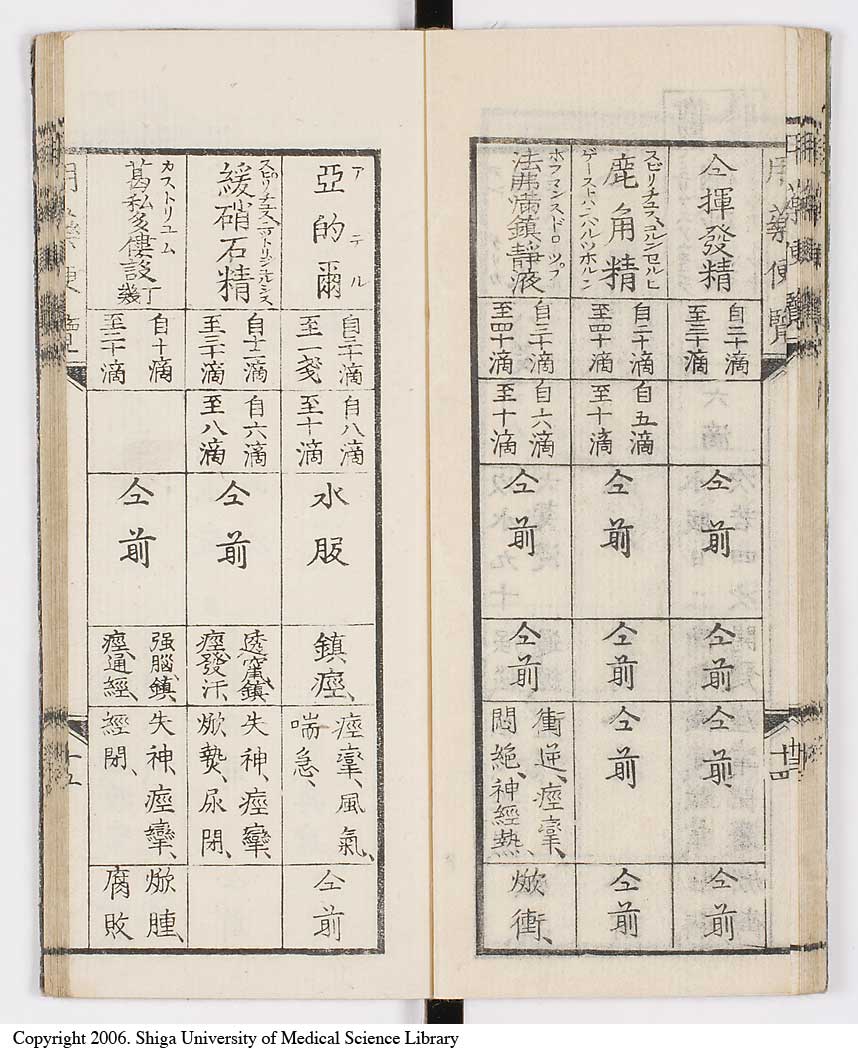 用藥便覽
仝揮發精
自二十滴
至三十滴
仝前
仝前
仝前
仝前
スピリチュス、コルンセルヒ
鹿角精
ゲーストハンハルツホルン
自二十滴
至四十滴
自五滴
至十滴
仝前
仝前
仝前
仝前
ホフマンスドロツプ
法弗滿鎮靜液
自二十滴
至四十滴
自六滴
至十滴
仝前
仝前
衝逆、痙攣、
悶絶、神經熱、
焮衝、
十四
アテル
亞的爾
自二十滴
至一戔
自八滴
至十滴
水服
鎮痙、
痙攣、風氣、
喘急、
仝前
緩硝石精
自十二滴
至三十滴
自六滴
至八滴
仝前
透竄、鎮
痙、發汗、
失神、痙攣、
焮熱、尿閉、
カストリユム
葛私多僂謨丁幾
自十滴
至二十滴
仝前
强腦、鎮
痙、通經、
失神、痙攣、
經閉、
焮腫、
腐敗
用藥便覽
十五
Copyright 2006. Shiga University of Medical Science Library